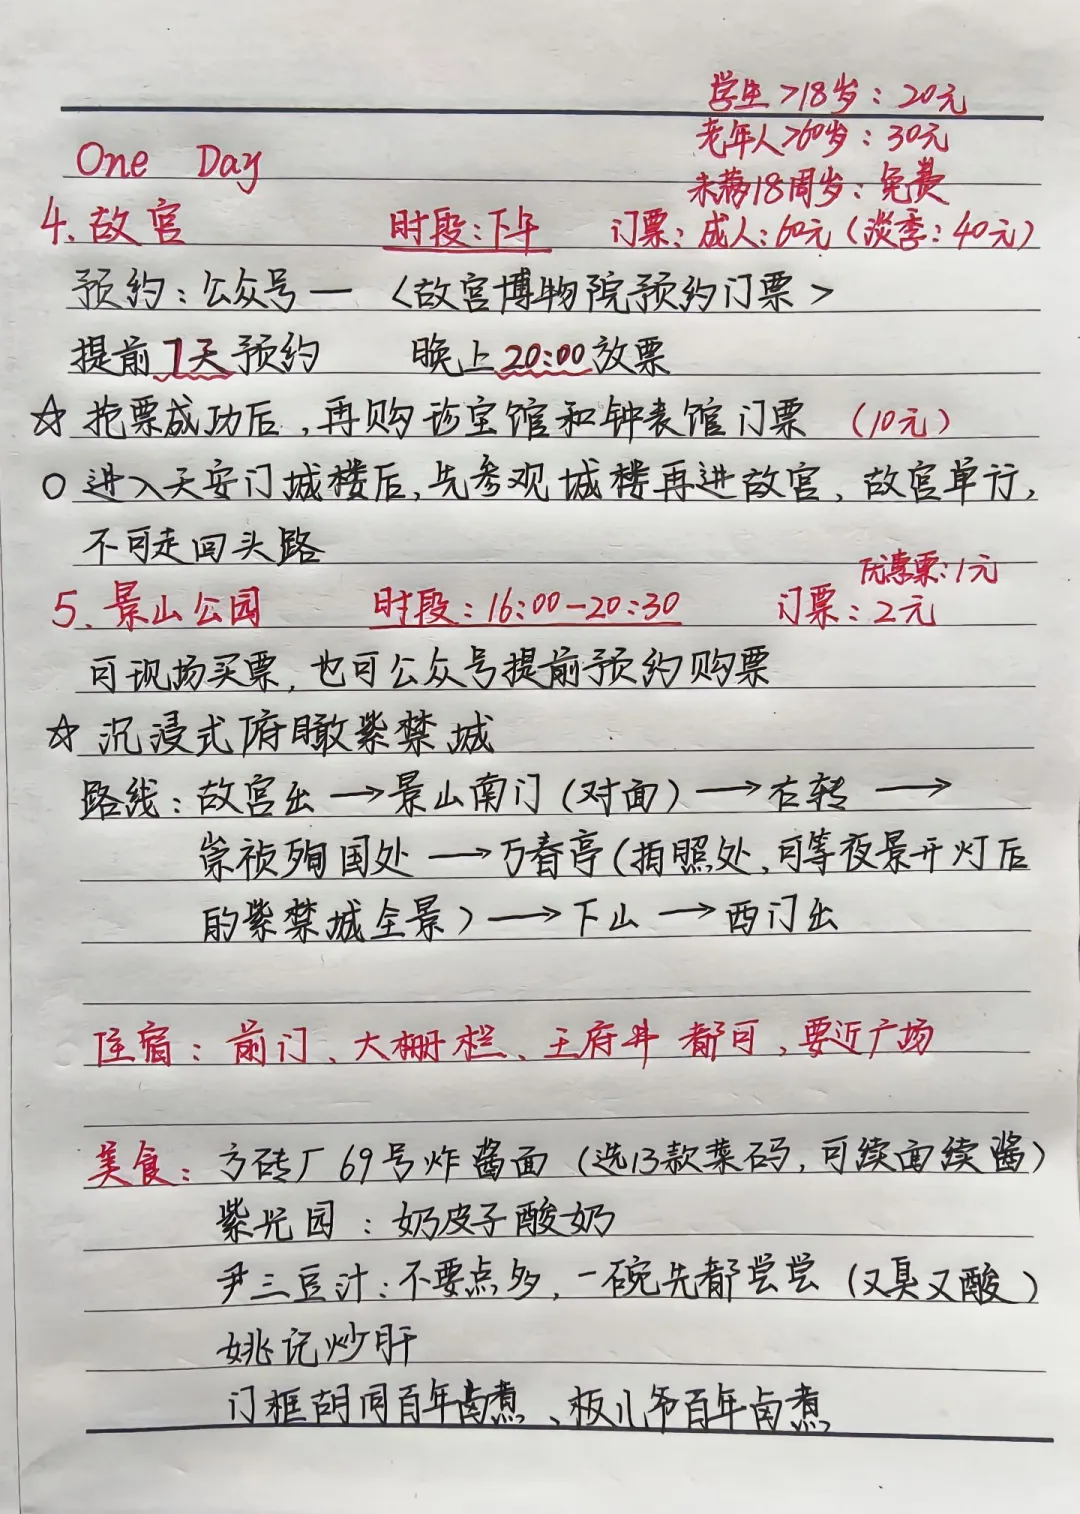 学生>18岁：20元
老年人>60岁：30元
One Day
未满18周岁：免费
4.故宫 时段：下午 门票：成人：60元（淡季：40元）
预约：公众号—〈故宫博物院预约门票>
提前7天预约 晚上20:00放票
☆抢票成功后，再购珍宝馆和钟表馆门票（10元）
○进入天安门城楼后，先参观城楼再进故宫，故宫单行，
不可走回头路
优惠票：1元
5.景山公园 时段：16:00-20:30 门票：2元
可现场买票，也可公众号提前预约购票
☆沉浸式俯瞰紫禁城
路线：故宫出→景山南门（对面）→右转→
崇祯殉国处→万春亭（拍照处，可等夜景开灯后
的紫禁城全景）→下山→西门出
住宿：前门、大栅栏、王府井都可，要近广场
美食：方砖厂69号炸酱面（选13款菜码，可续面续酱）
紫光园：奶皮子酸奶
尹三豆汁：不要点多，一碗先都尝尝（又臭又酸）
姚记炒肝
门框胡同百年卤煮、板儿爷百年卤煮